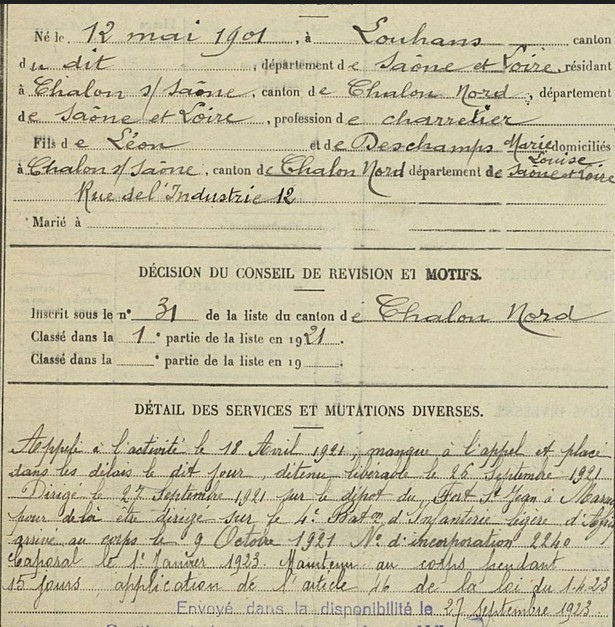 Né le 12 mai 1901, à Louhans canton
du dit, département de Saône et Loire, résidant
à Chalon s/ Saône, canton de Chalon Nord, département
de Saône et Loire, profession de charretier
Fils de Léon et de Deschamps Marie Louise domiciliés
à Chalon s/ Saône, canton de Chalon Nord département de Saône et Loire
Rue de l'Industrie 12
Marié à
DÉCISION DU CONSEIL DE REVISION ET MOTIFS.
Inscrit sous le n° 31 de la liste du canton de Chalon Nord
Classé dans la 1e partie de la liste en 1921.
Classé dans la e partie de la liste en 19
DÉTAIL DES SERVICES ET MUTATIONS DIVERSES.
Appelé à l'activité le 18 Avril 1921, manque à l'appel et placé
dans les délais le dit jour, détenu libérable le 26 Septembre 1921
Dirigé le 27 Septembre 1921 sur le dépôt du Fort St Jean à
pour de là être dirigé sur le 4e Baton d'Infanterie légère
arrivé au corps le 9 Octobre 1921 N° d'incorporation 2240
Caporal le 1er Janvier 1923 Maintenu au corps pendant
15 jours, application de l'article 46 de la loi du 1.4.23
Envoyé dans la disponibilité le 27 Septembre 1923